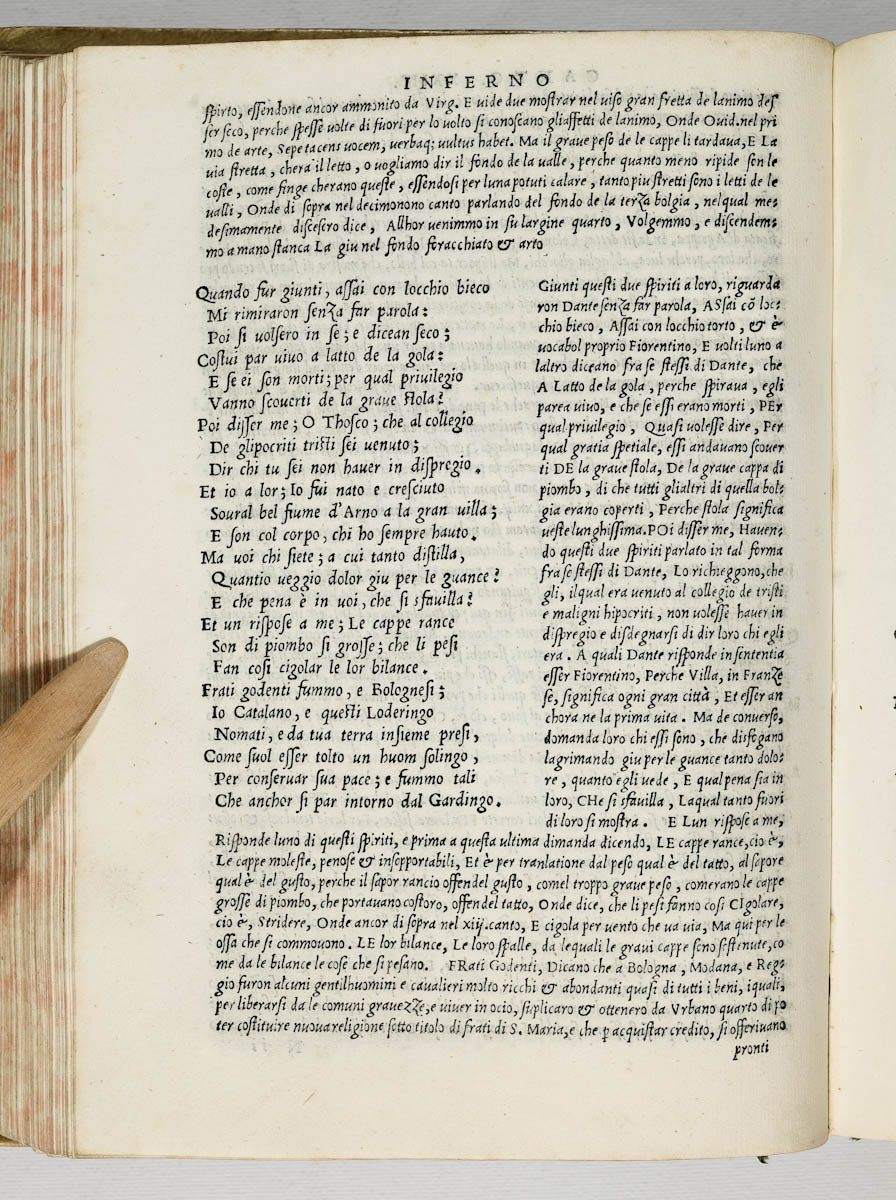 INFERNO
spirto, essendone ancor ammonito da Virg. E uide due mostrar nel uiso gran fretta de lanimo des
ser seco, perche spesse uolte di fuori per lo uolto si conoscano gliaffetti de lanimo, Onde Ouid. nel pri
mo de arte, Sepe tacens uocem, uerbaq; uultus habet. Ma il graue peso de le cappe li tardaua, E La
uia stretta, chera il letto, o uogliamo dir il fondo de la ualle, perche quanto meno ripide son le
coste, come finge cherano queste, essendosi per luna potuti calare, tanto piu stretti sono i letti de le
ualli, Onde di sopra nel decimonono canto parlando del fondo de la terza bolgia, nelqual me-
desimamente discesero dice, Allhor uenimmo in su largine quarto, Volgemmo, e discendem-
mo a mano stanca La giu nel fondo foracchiato & arto
Quando fur giunti, assai con locchio bieco
Mi rimiraron senza far parola:
Poi si uolsero in se; e dicean seco;
Costui par uiuo a latto de la gola:
E se ei son morti; per qual priuilegio
Vanno scouerti de la graue stola?
Poi disser me; O Thosco; che al collegio
De glipocriti tristi sei uenuto;
Dir chi tu sei non hauer in dispregio.
Et io a lor; Io fui nato e cresciuto
Soural bel fiume d'Arno a la gran uilla;
E son col corpo, chi ho sempre hauto.
Ma uoi chi siete; a cui tanto distilla,
Quantio ueggio dolor giu per le guance?
E che pena è in uoi, che si sfauilla?
Et un rispose a me; Le cappe rance
Son di piombo si grosse; che li pesi
Fan cosi cigolar le lor bilance.
Frati godenti fummo, e Bolognesi;
Io Catalano, e questi Loderingo
Nomati, e da tua terra insieme presi,
Come suol esser tolto un huom solingo,
Per conseruar sua pace; e fummo tali
Che anchor si par intorno dal Gardingo.
Giunti questi due spiriti a loro, riguarda
ron Dante senza far parola, ASsai cō loc-
chio bieco, Assai con locchio torto, & è
uocabol proprio Fiorentino, E uolti luno a
laltro diceano fra se stessi di Dante, che
A Latto de la gola, perche spiraua, egli
parea uiuo, e che se essi erano morti, PEr
qual priuilegio, Quasi uolesse dire, Per
qual gratia spetiale, essi andauano scouer
ti DE la graue stola, De la graue cappa di
piombo, di che tutti glialtri di quella bol-
gia erano coperti, Perche stola significa
ueste lunghissima. POi disser me, Hauen-
do questi due spiriti parlato in tal forma
fra se stessi di Dante, Lo richieggono, che
gli, ilqual era uenuto al collegio de tristi
e maligni hipocriti, non uolesse hauer in
dispregio e disdegnarsi di dir loro chi egli
era. A quali Dante risponde in sententia
esser Fiorentino, Perche Villa, in Franze
se, significa ogni gran città, Et esser an
chora ne la prima uita. Ma de conuerso,
domanda loro chi essi sono, che disfogano
lagrimando giu per le guance tanto dolo-
re, quanto egli uede, E qual pena sia in
loro, CHe si sfauilla, Laqual tanto fuori
di loro si mostra. E Lun rispose a me,
Risponde luno di questi spiriti, e prima a questa ultima dimanda dicendo, LE cappe rance, cio è,
Le cappe moleste, penose & insopportabili, Et è per tranlatione dal peso qual è del tatto, al sapore
qual è del gusto, perche il sapor rancio offende l gusto, comel troppo graue peso, comerano le cappe
grosse di piombo, che portauano costoro, offendel tatto, Onde dice, che li pesi fanno cosi CIgolare,
cio è, Stridere, Onde ancor di sopra nel xiij. canto, E cigola per uento che ua uia, Ma qui per le
ossa che si commouono. LE lor bilance, Le loro spalle, da lequali le graui cappe sono sostenute, co
me da le bilance le cose che si pesano. FRati Godenti, Dicano che a Bologna, Modana, e Reg-
gio furon alcuni gentilhuomini e caualieri molto ricchi & abondanti quasi di tutti i beni, iquali,
per liberarsi da le comuni grauezze, e uiuer in ocio, suplicaro & ottenero da Vrbano quarto di po
ter costituire nuoua religione sotto titolo di frati di S. Maria, e che p acquistar credito, si offeriuano
pronti